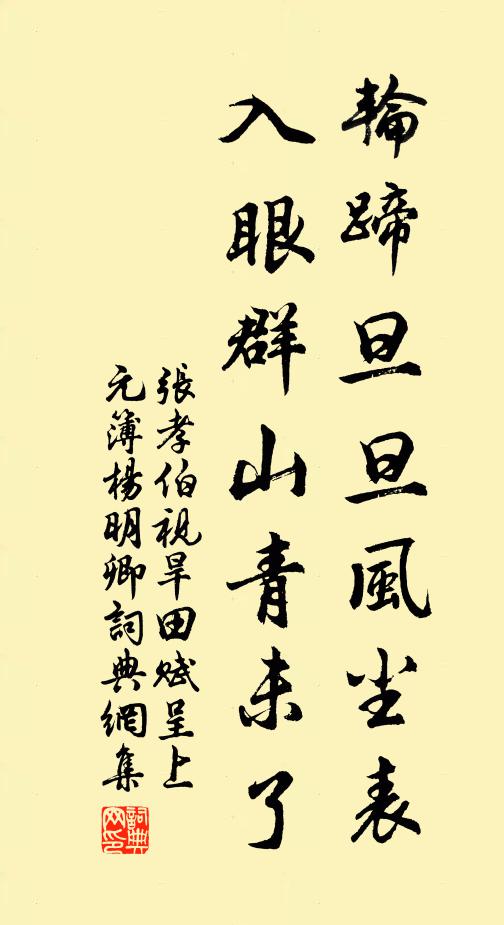 輪蹄旦旦風尘表
入眼群山青未了
張孝伯視旱田賦呈上
元簿楊明卿詞典網集
詞典网印